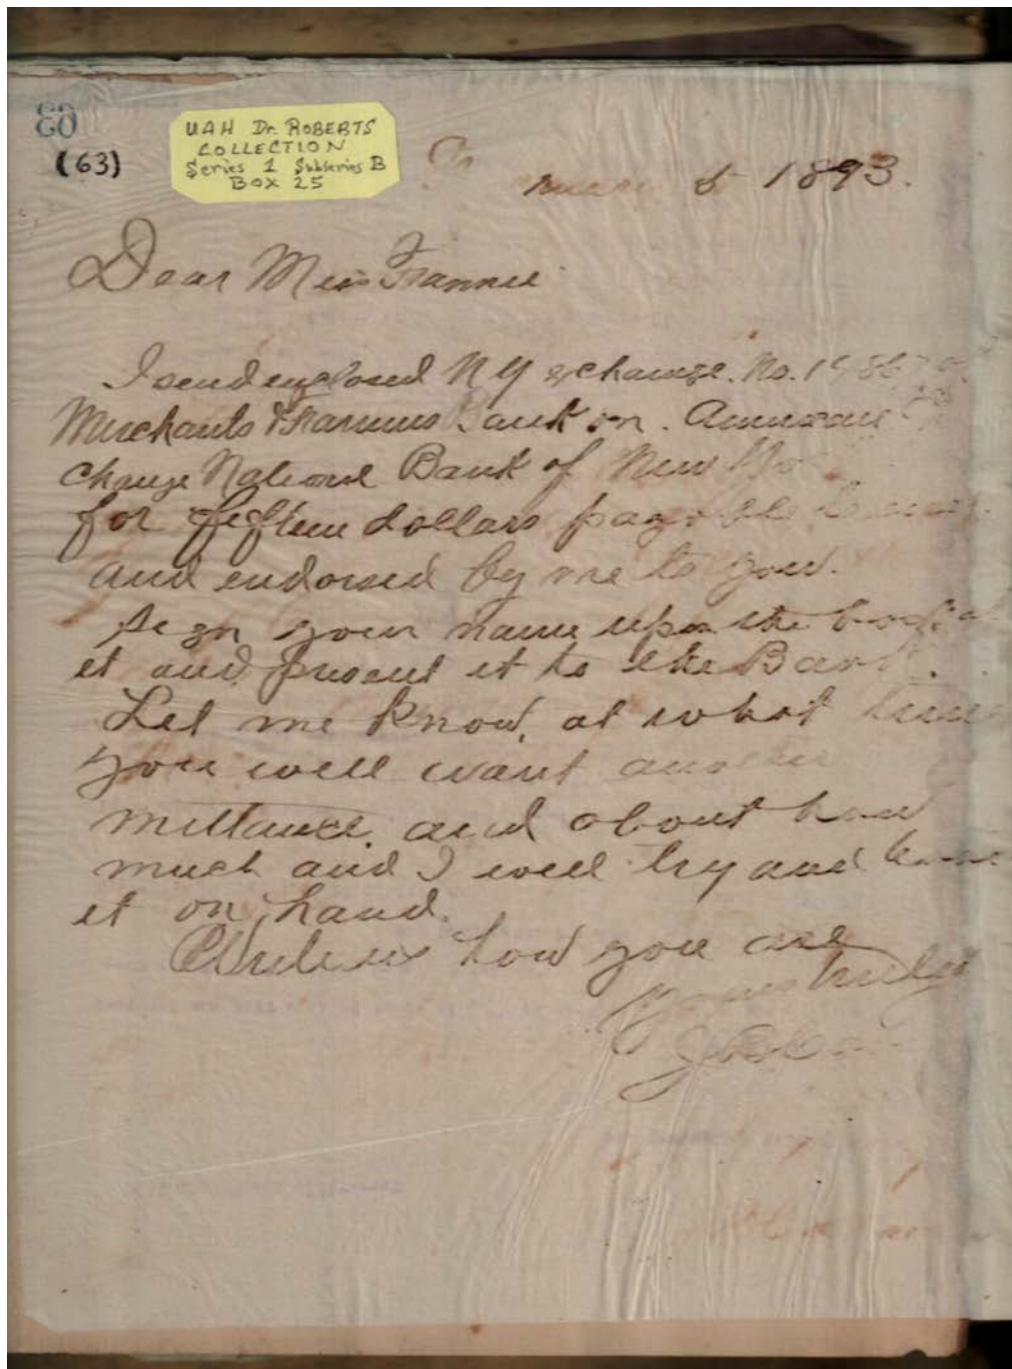 63
(63)
UAH Dr. ROBERTS
COLLECTION
Series 1 Subseries B
BOX 25
5 1893.
Dear Miss Fannie
I send enclosed N Y exchange. No.
Merchants & Farmers Bank on. American
change National Bank of New
for fifteen dollars payable
and endorsed by me to you.
Sign your name upon the back
it and present it to the Bank.
Let me know, at what time
you will want another
mittance. and about how
much and I will try and have
it on hand.
how you are
Yours truly